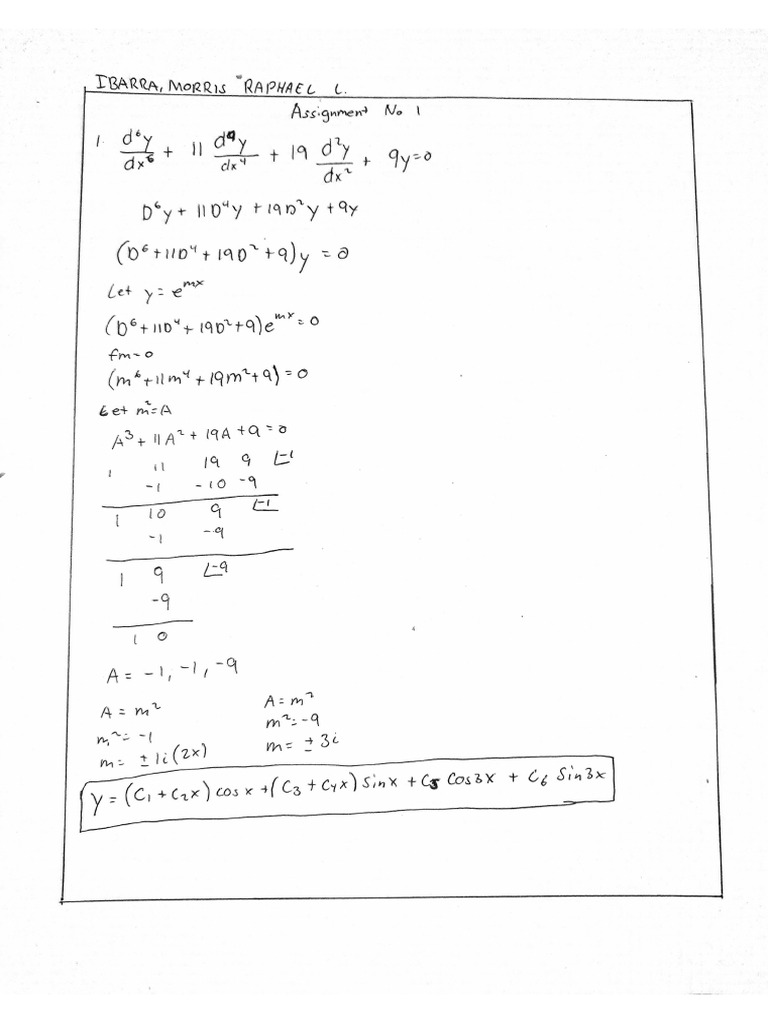 IBARRA, MORRIS RAPHAEL L.
Assignment No 1
1. d⁶y/dx⁶ + 11 d⁴y/dx⁴ + 19 d²y/dx² + 9y=0
D⁶y + 11D⁴y + 19D²y + 9y
(D⁶ + 11D⁴ + 19D² + 9)y = 0
Let y = e^mx
(D⁶ + 11D⁴ + 19D² + 9)e^mx = 0
fm=0
(m⁶ + 11m⁴ + 19m² + 9) = 0
Let m² = A
A³ + 11A² + 19A + 9 = 0
1 11 19 9 ∟-1
-1 -10 -9
1 10 9 ∟-1
-1 -9
1 9 ∟-9
-9
1 0
A = -1, -1, -9
A = m² A = m²
m² = -1 m² = -9
m = ± 1i (2x) m = ± 3i
y = (C₁ + C₂x) cos x + (C₃ + C₄x) Sin x + C₅ Cos3x + C₆ Sin3x